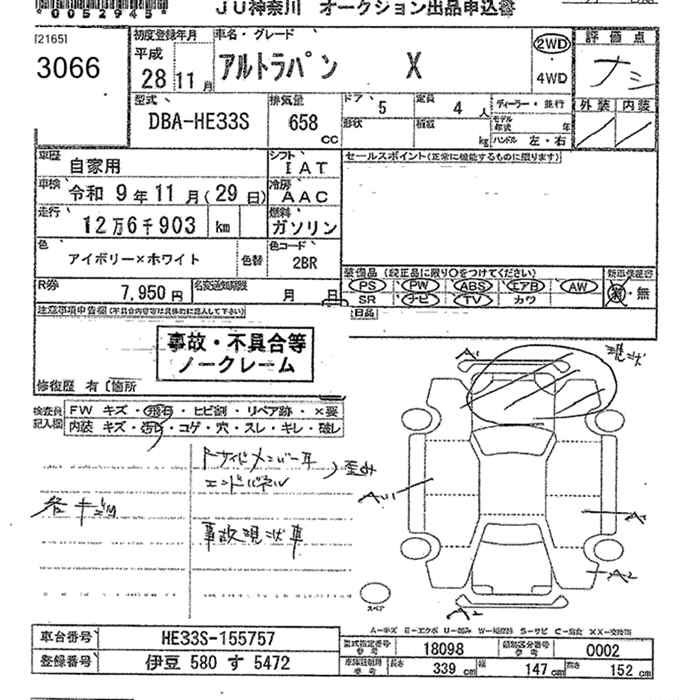 0052945
JU神奈川 オークション出品申込書
[2165]
3066
初度登録年月
平成
28 11 月
車名・グレード
アルトラパン X
2WD
4WD
評価点
ナシ
外装 内装
型式
DBA-HE33S
排気量
658 cc
ドア
5
定員
4 人
形状
積載
kg
ディーラー・並行
モデル年式 年
ハンドル 左・右
車歴
自家用
シフト
IAT
車検
令和 9年 11月(29日)
冷房
AAC
走行
12万6千903 km
燃料
ガソリン
色
アイボリー×ホワイト
色替
色コード
2BR
R券
7,950円
名変通知期限
月 日
セールスポイント(正常に機能するものに限ります)
装備品(純正品に限り○をつけてください)
PS PW ABS エアB AW
SR ナビ TV カワ
新車保証書
有・無
注意事項申告欄(不具合内容等は具体的に記入して下さい)
事故・不具合等
ノークレーム
修復歴 有〔箇所
検査員記入欄
FW キズ・飛石・ヒビ割・リペア跡・×要
内装 キズ・汚れ・コゲ・穴・スレ・キレ・破レ
エンドパネル
歪み
各キズ
事故現状車
現状
A1
A1
A2
A2
スペア
A-キズ E-エクボ U-凹み W-補修跡 S-サビ C-腐食 XX-交換済
車台番号
HE33S-155757
登録番号
伊豆 580 す 5472
型式指定番号
参考
18098
類別区分番号
参考
0002
長さ
339 cm
幅
147 cm
高さ
152 cm